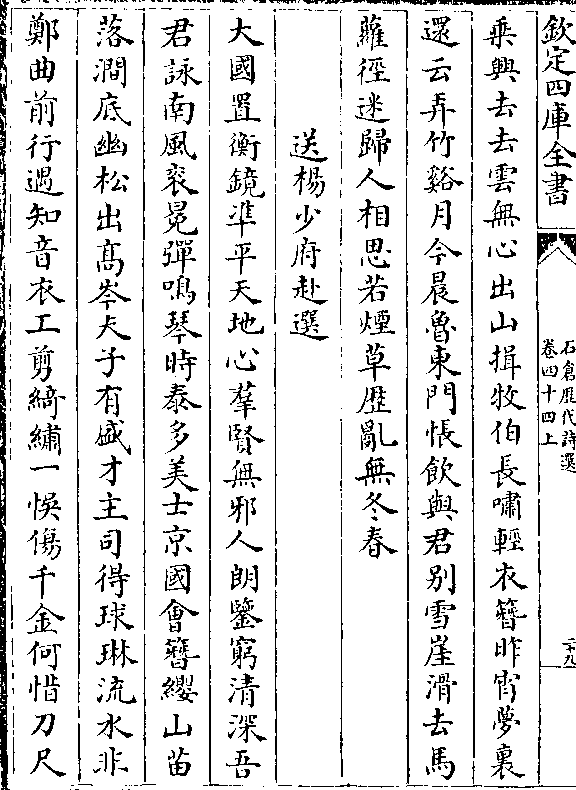 欽定四庫全書
石倉歴代詩選
卷四十四上
二十九
乗興去去雲無心出山揖牧伯長嘯輕衣簪昨宵夢裏
還云弄竹谿月今晨魯東門悵飲與君别雪崖滑去馬
蘿徑迷歸人相思若煙草歴亂無冬春
送楊少府赴選
大國置衡鏡凖平天地心羣賢無邪人朗鑒窮清深吾
君詠南風衮冕彈鳴琴時泰多美士京國會簪纓山苗
落澗底幽松出髙岑夫子有盛才主司得球琳流水非
鄭曲前行遇知音衣工剪綺繡一悞傷千金何惜刀尺